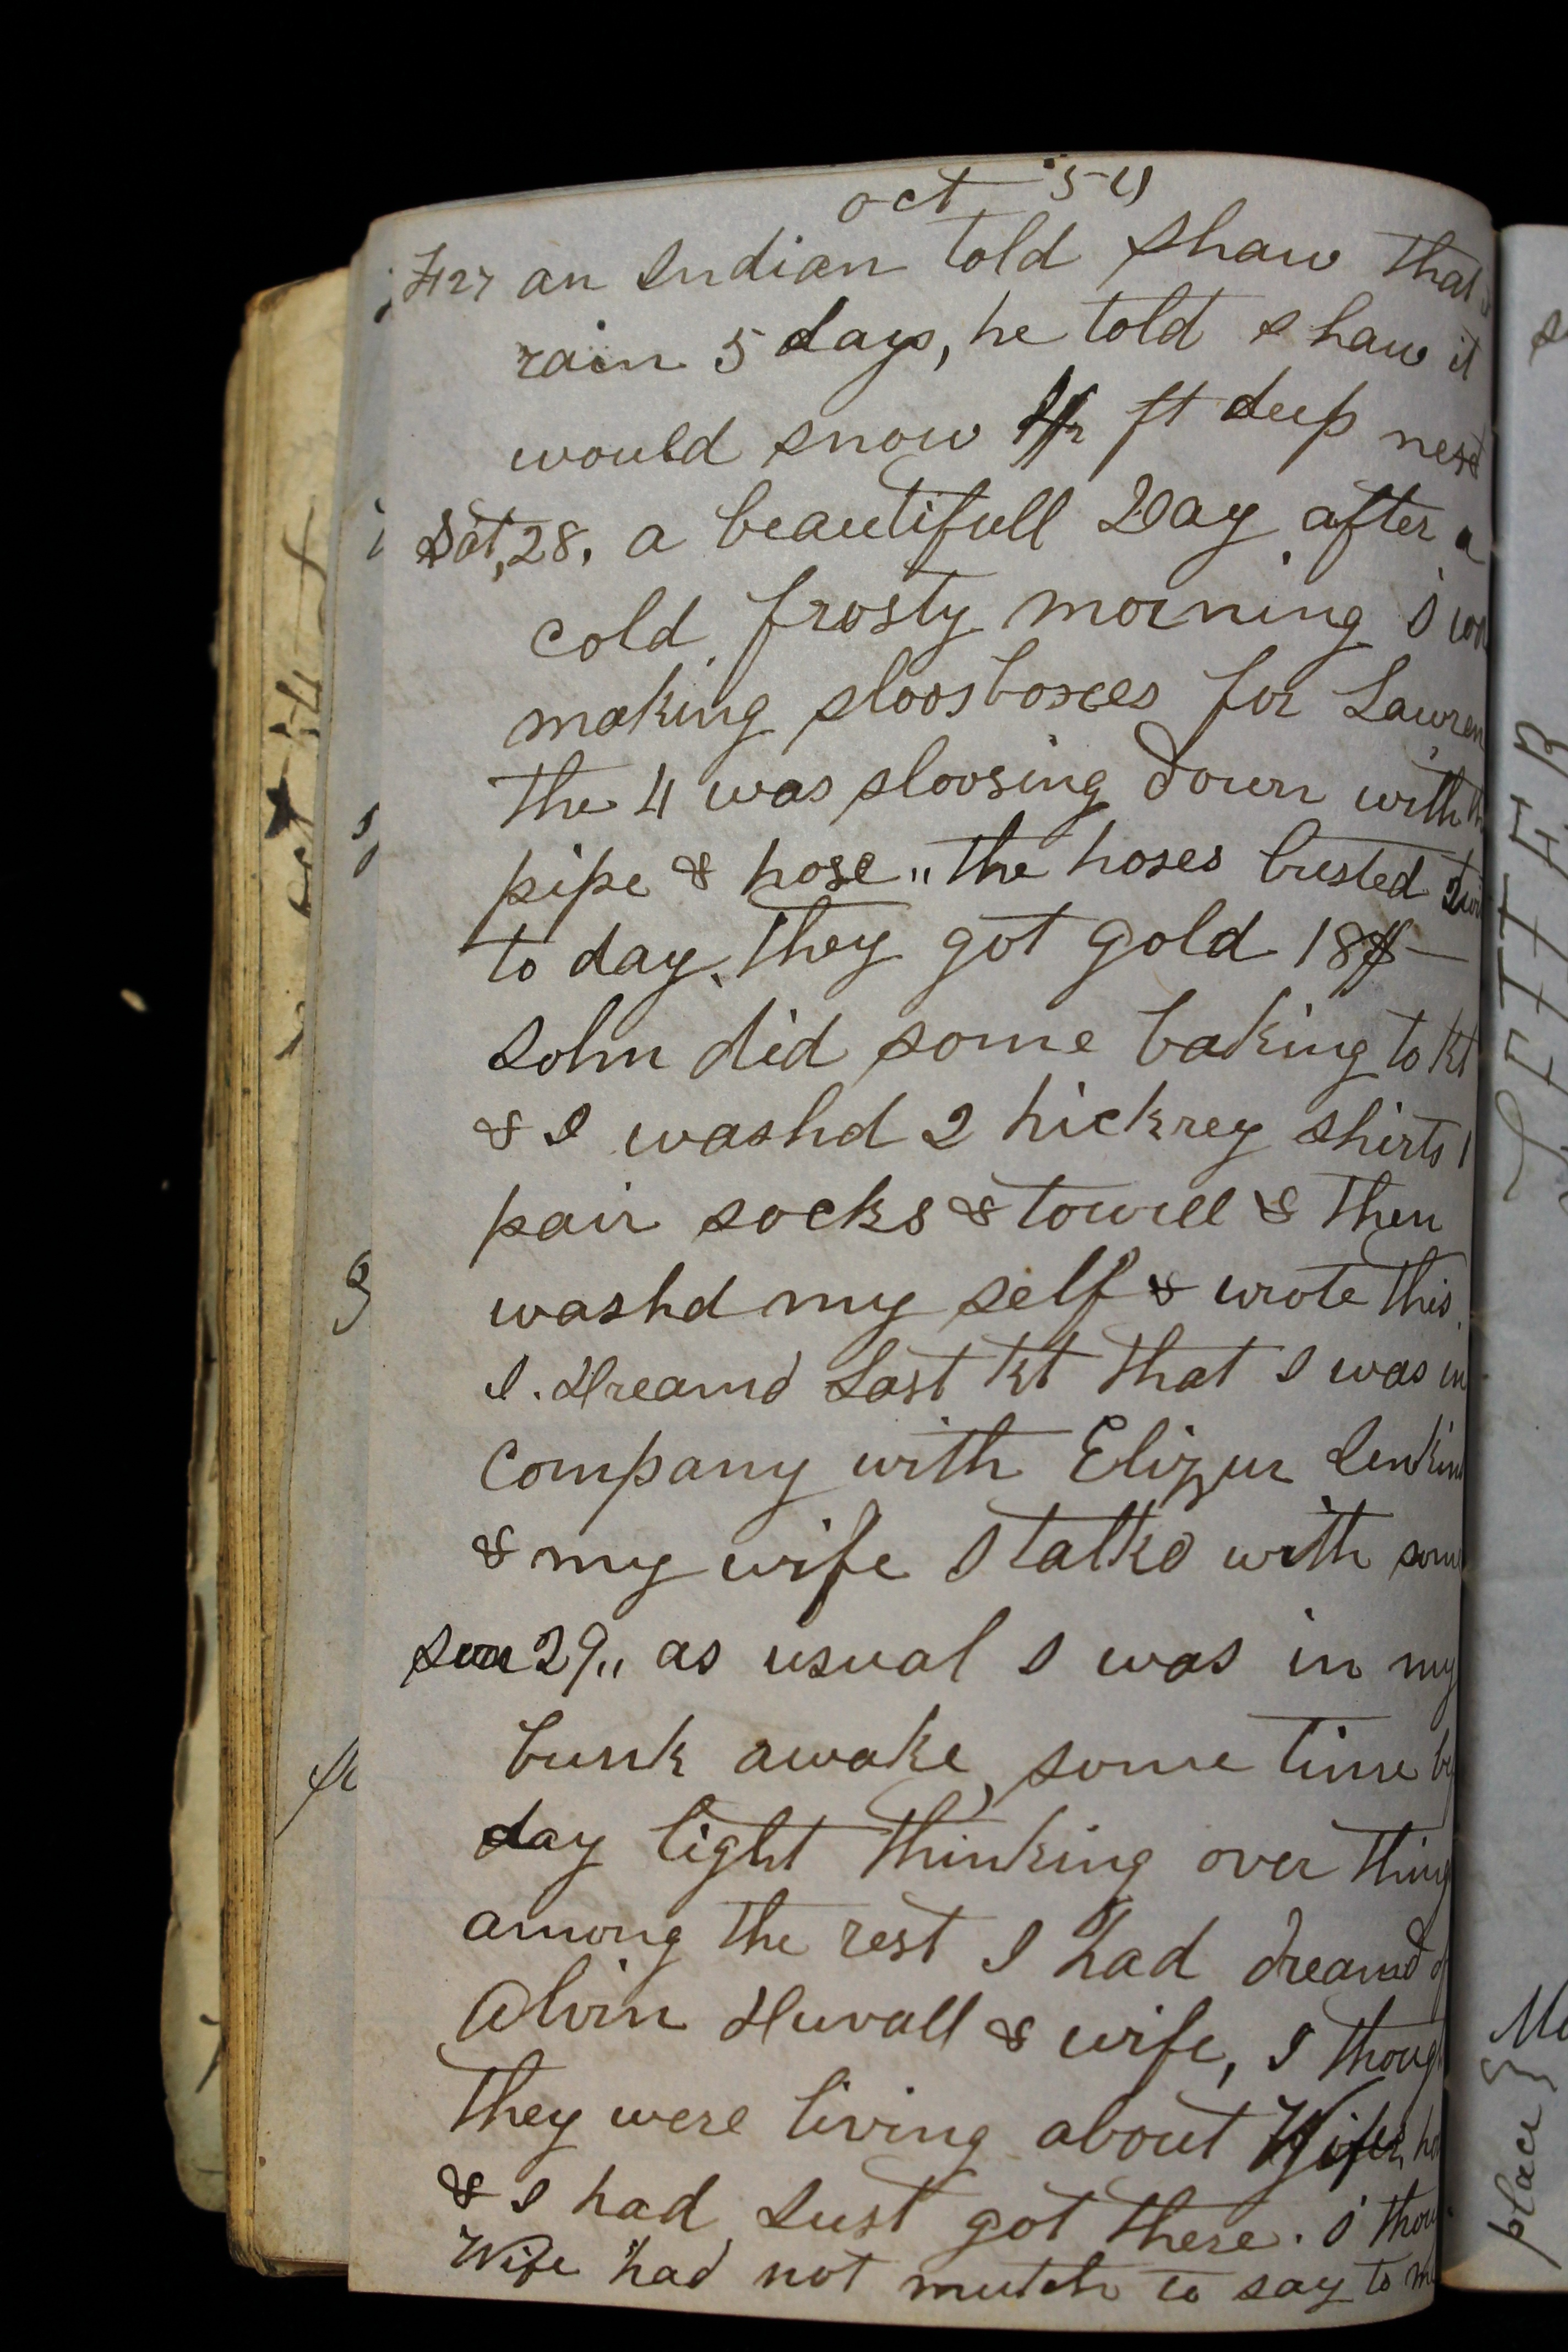 oct '54
F 27 an Indian told Shaw that
rain 5 days, he told Shaw it
would snow ft deep next
Sat, 28. a beautifull Day after a
cold frosty morning I
making sloosboxes for Lawren
the 4 was sloosing down with th
pipe & hose ,, the hoses busted
to day. They got gold 18$ —
John did some baking to Nt
& I washd 2 hickrey shirts 1
pair socks & towell & then
washd my self & wrote this.
I. Dreamd Last Nt that I was in
company with Elizur Jenkins
& my wife I talkd with some
Sun 29,, as usual I was in my
bunk awake, some time by
day light thinking over thing
among the rest I had dreamd of
Alvin Duvall & wife, I thoug
they were living about Wifes ho
& I had Just got there. I thou
Wife had not mutch to say to me
LETTER
place } M